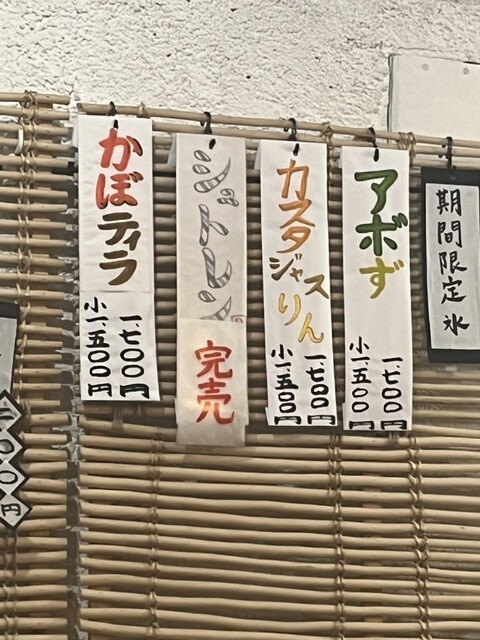 期間限定氷
アボず
一、七〇〇円
小一、五〇〇円
カスタ
ジャス
りん
一、七〇〇円
小一、五〇〇円
シュトレン
完売
かぼティラ
一、七〇〇円
小一、五〇〇円
〇〇円